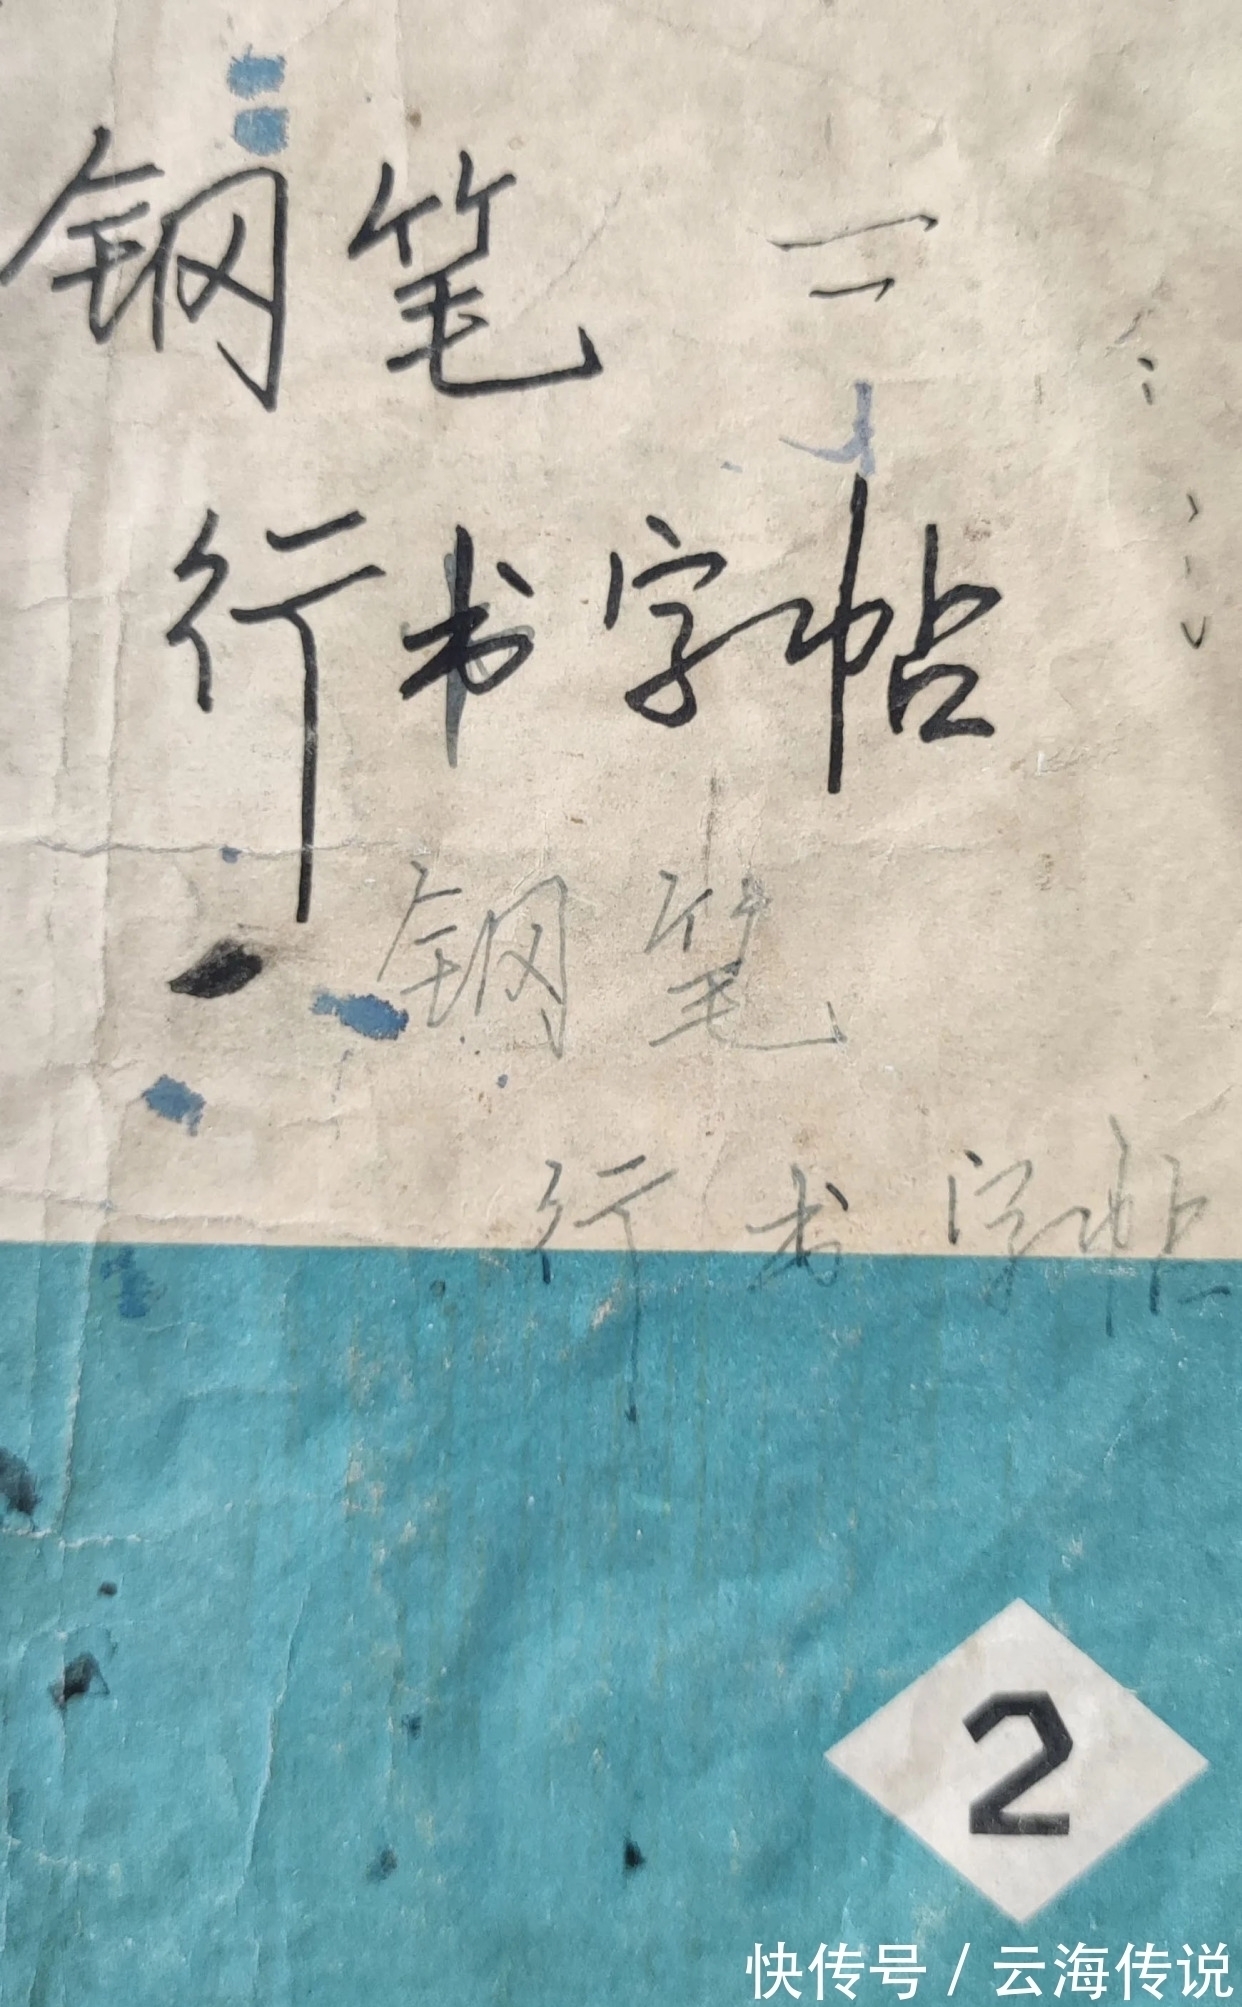 钢笔
行书字帖
钢笔
行书字帖
2
快传号 / 云海传说